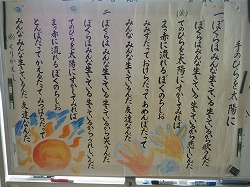 手のひらを太陽に
一 ぼくらはみんな生きている 生きているから歌うんだ
ぼくらはみんな生きている 生きているから悲しいんだ
(※)てのひらを太陽にすかしてみれば
まっ赤に流れるぼくのちしお
みみずだっておけらだってあめんぼだって
みんなみんな生きているんだ友達なんだ
二 ぼくらはみんな生きている 生きているから笑うんだ
ぼくらはみんな生きている 生きているからうれしいんだ
てのひらを太陽にすかしてみれば
まっ赤に流れるぼくのちしお
とんぼだってかえるだってみつばちだって
みんなみんな生きているんだ友達なんだ
(※)くりかえし